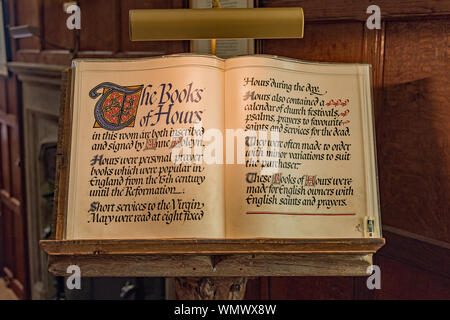 The Books
of Hours
in this room are both inscribed
and signed by Anne Boleyn.
Hours were personal prayer
books which were popular in
England from the 13th century
until the Reformation
Short services to the Virgin
Mary were read at eight fixed
Hours during the day.
Hours also contained a
calendar of church festivals,
psalms, prayers to favourite
saints and services for the dead
They were often made to order
with minor variations to suit
the purchaser.
These Books of Hours were
made for English owners with
English saints and prayers.
alamy
Image ID: WMMX08
www.alamy.com